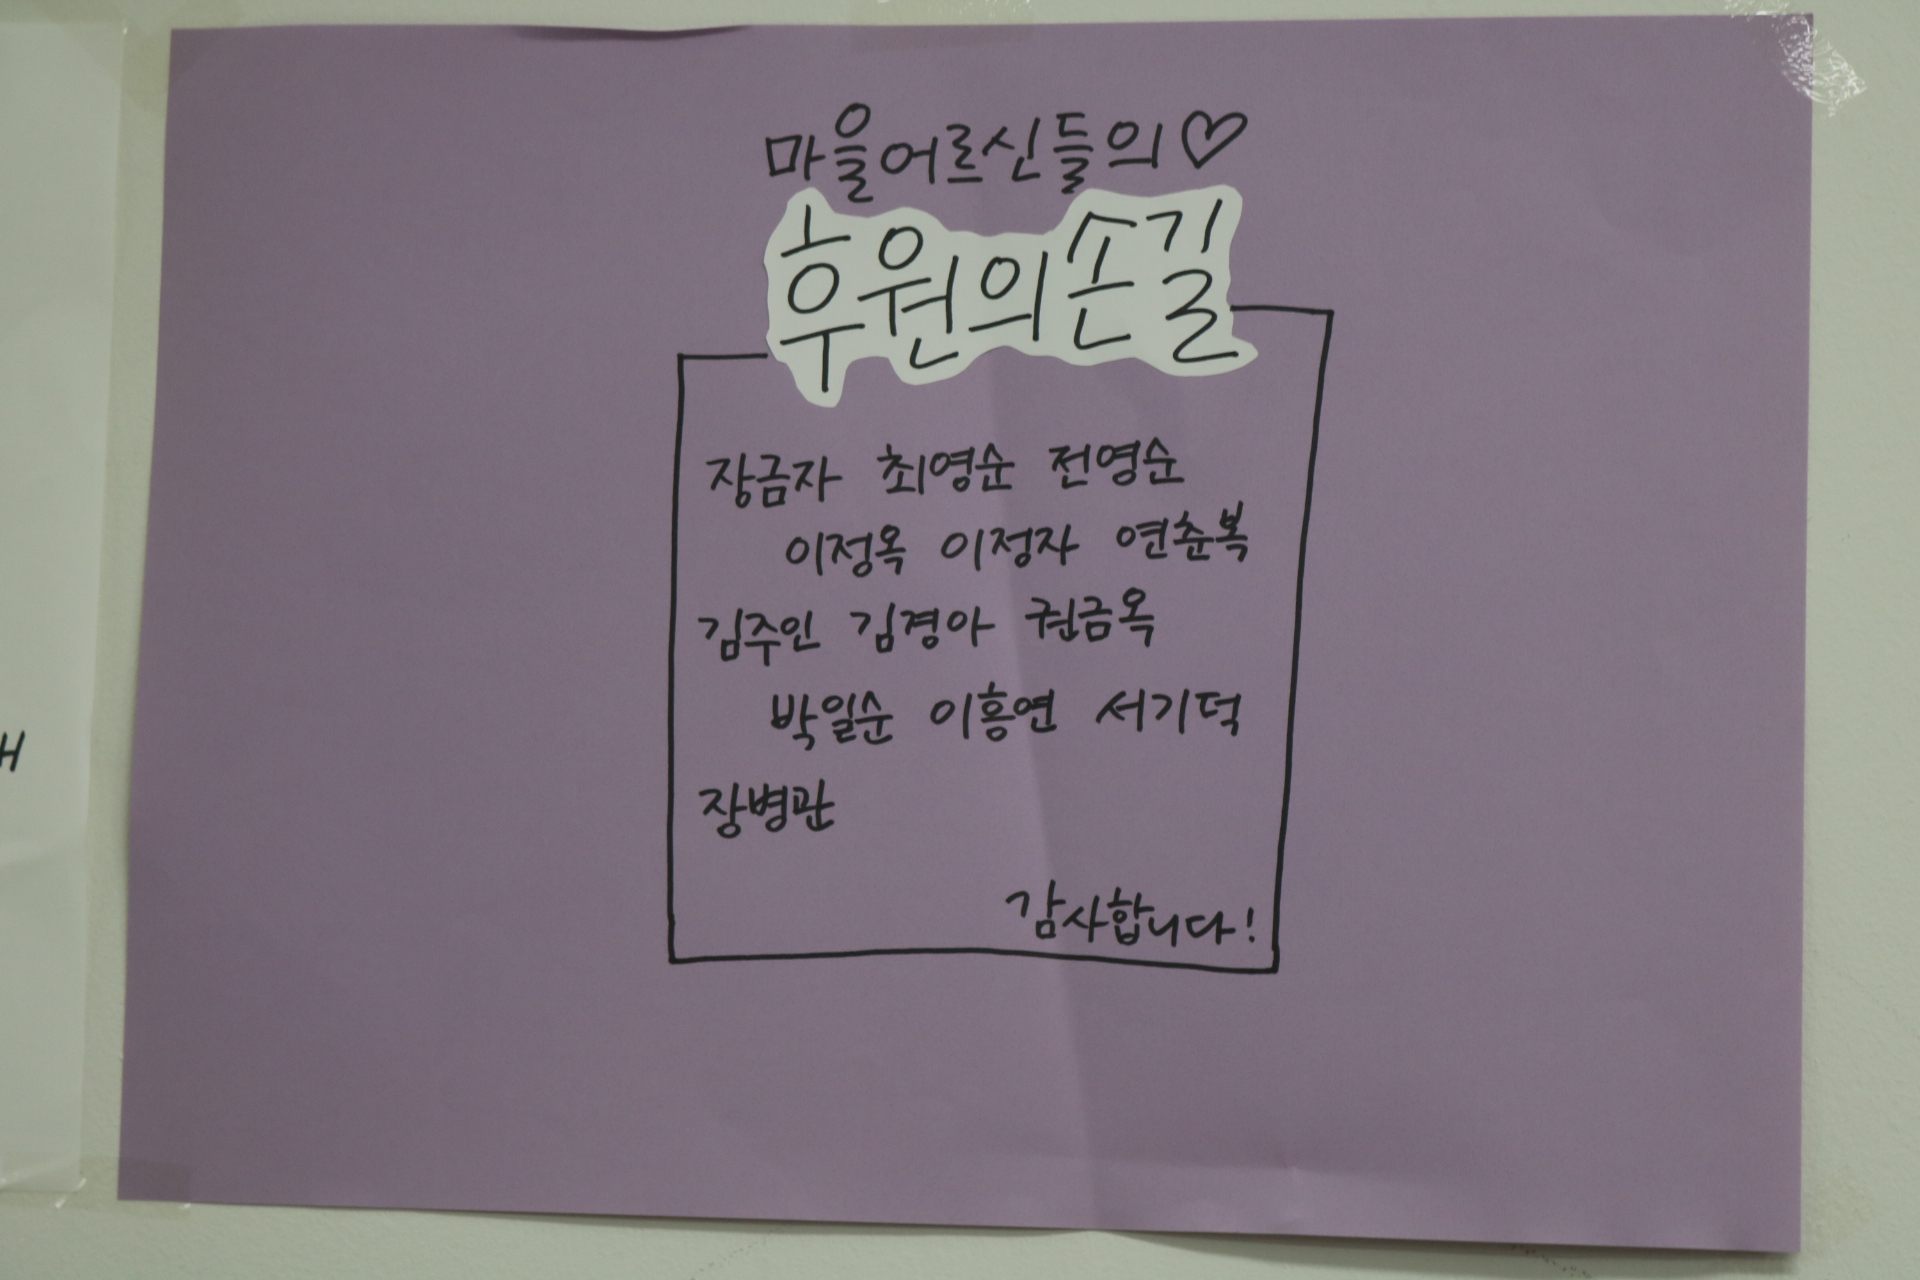 마을어르신들의♡
후원의손길
장금자 최영순 전영순
이정옥 이정자 연춘복
김주인 김경아 권금옥
박일순 이홍연 서기덕
장병관
감사합니다!